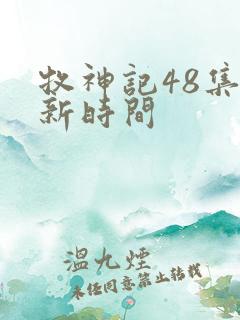 牧神記48集
新時間
溫九煙
未经同意禁止转载